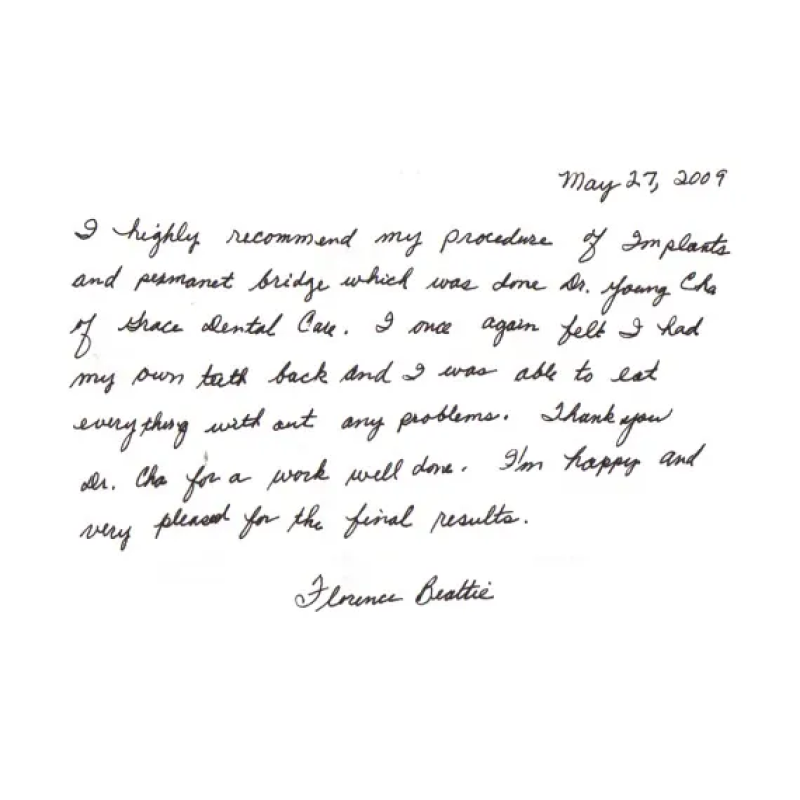 May 27, 2009
I highly recommend my procedure of Implants
and permanet bridge which was done Dr. Young Cha
of Grace Dental Care. I once again felt I had
my own teeth back and I was able to eat
everything with out any problems. Thank you
Dr. Cha for a work well done. I'm happy and
very pleased for the final results.
Florence Beattie